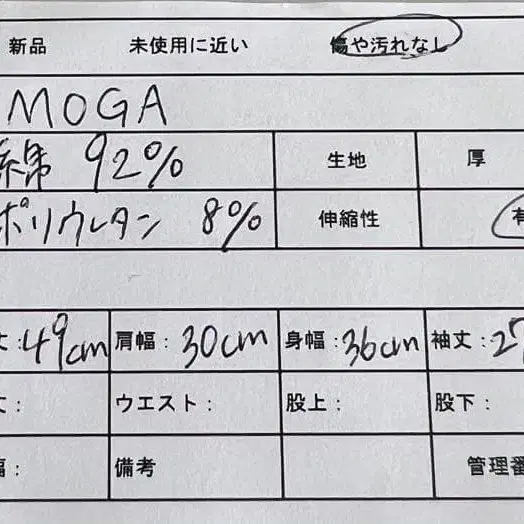 新品 未使用に近い 傷や汚れなし
MOGA
綿 92% 生地 厚
ポリウレタン 8% 伸縮性 有
丈:49cm 肩幅:30cm 身幅:36cm 袖丈:27
丈: ウエスト: 股上: 股下:
幅: 備考 管理番